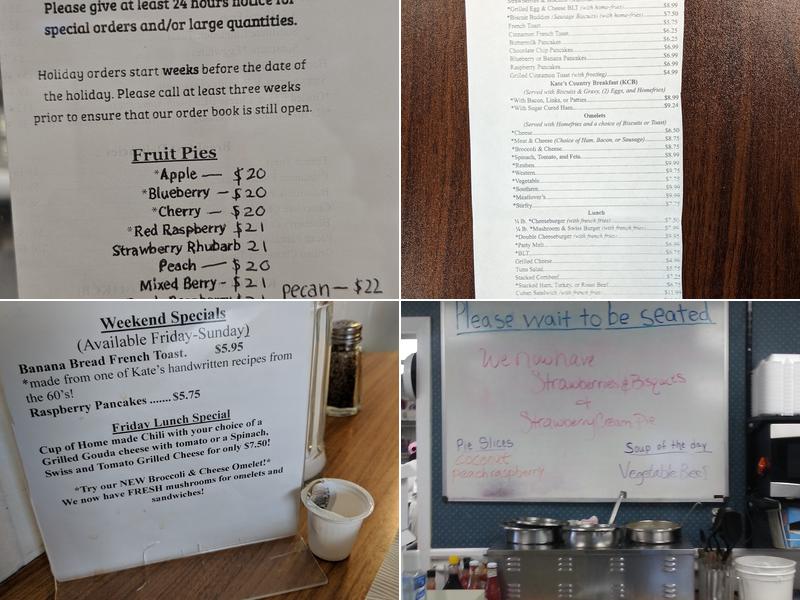 Please give at least 24 hours notice for
special orders and/or large quantities.
Holiday orders start weeks before the date of
the holiday. Please call at least three weeks
prior to ensure that our order book is still open.
Fruit Pies
*Apple — $20
*Blueberry - $20
*Cherry - $20
*Red Raspberry $21
Strawberry Rhubarb 21
Peach — $20
Mixed Berry - $21
pecan - $22
*Grilled Egg & Cheese BLT (with home-fries) $8.99
*Biscuit Buddies (Sausage Biscuits) (with home-fries) $7.50
French Toast $5.75
Cinnamon French Toast $6.25
Buttermilk Pancakes $6.25
Chocolate Chip Pancakes $6.99
Blueberry or Banana Pancakes $6.99
Raspberry Pancakes $6.99
Grilled Cinnamon Toast (with frosting) $4.99
Kate's Country Breakfast (KCB)
(Served with Biscuits & Gravy, (2) Eggs, and Homefries)
*With Bacon, Links, or Patties $8.99
*With Sugar Cured Ham $9.24
Omelets
(Served with Homefries and a choice of Biscuits or Toast)
*Cheese $6.50
*Meat & Cheese (Choice of Ham, Bacon, or Sausage) $8.75
*Broccoli & Cheese $8.75
*Spinach, Tomato, and Feta $8.99
*Reuben $9.99
*Western $9.75
*Vegetable $7.75
*Southern $9.99
*Meatlover's $9.99
*Stirfry $7.75
Lunch
¼ lb. *Cheeseburger (with french fries) $7.50
¼ lb. *Mushroom & Swiss Burger (with french fries)
*Double Cheeseburger (with french fries)
*Patty Melt
*BLT
Grilled Cheese
Tuna Salad
Stacked Cornbeef
*Stacked Ham, Turkey, or Roast Beef
Cuban Sandwich (with french fries)
Weekend Specials
(Available Friday-Sunday)
Banana Bread French Toast. $5.95
*made from one of Kate's handwritten recipes from
the 60's!
Raspberry Pancakes .......$5.75
Friday Lunch Special
Cup of Home made Chili with your choice of a
Grilled Gouda cheese with tomato or a Spinach,
Swiss and Tomato Grilled Cheese for only $7.50!
*Try our NEW Broccoli & Cheese Omelet!*
We now have FRESH mushrooms for omelets and
sandwiches!
Please wait to be seated
We now have
Strawberries & Bisquets
+
Strawberry Cream Pie
Pie Slices
coconut
peach raspberry
Soup of the day
Vegetable Beef